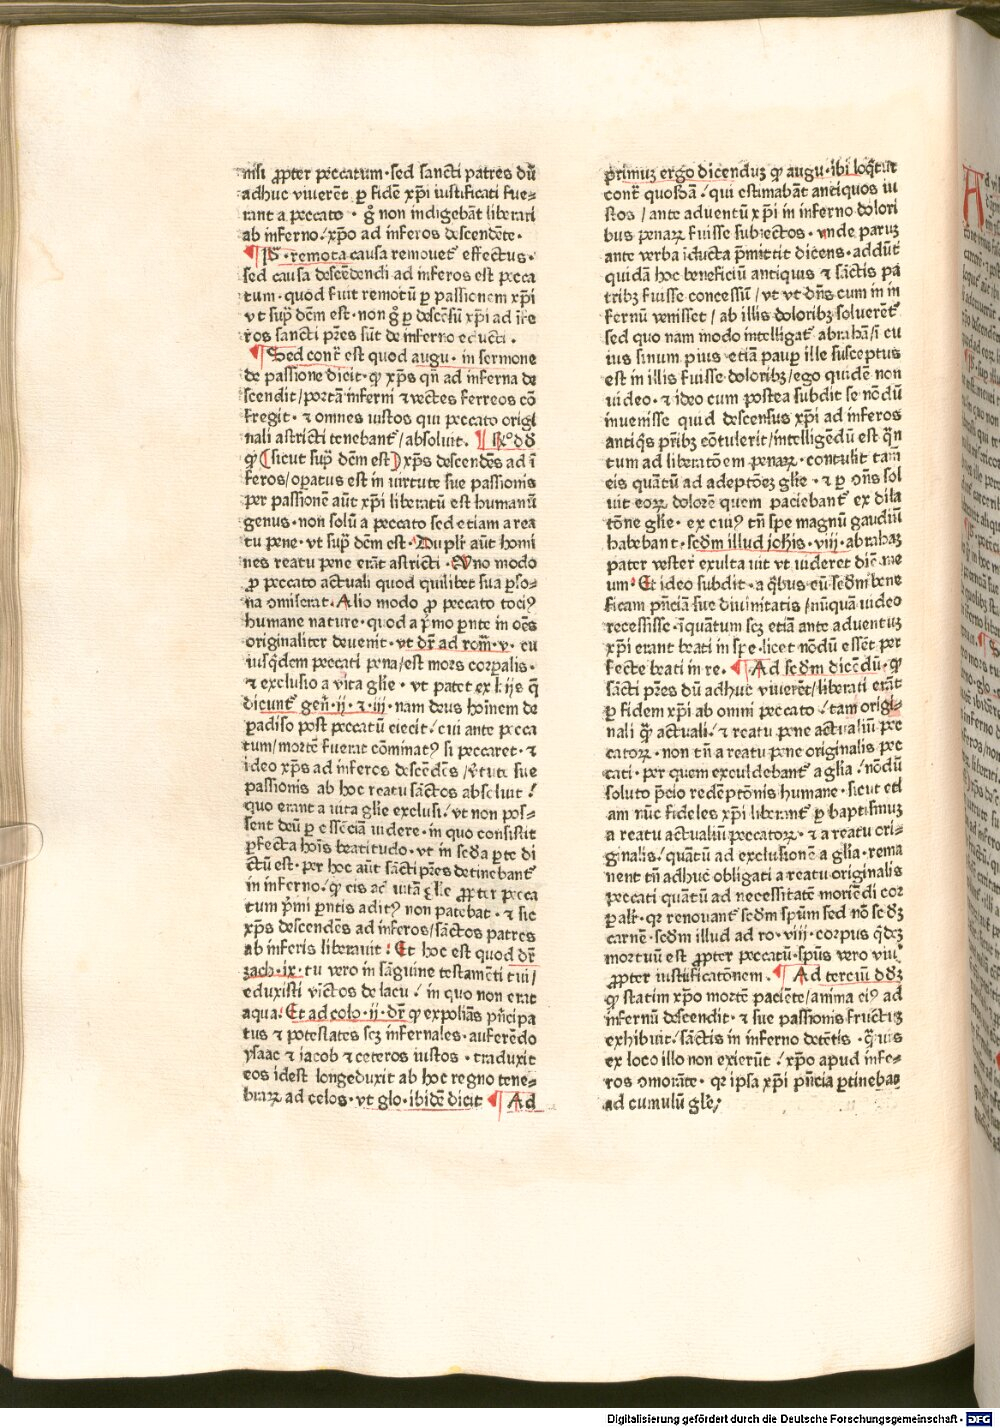 nisi ꝓpter peccatum·sed sancti patres dū
adhuc viuerēt ꝑ fidē xp̄i iustificati fue⸗
rant a peccato · g̊ non indigebāt liberari
ab inferno/ xp̄o ad inferos descendēte·
¶ Iꝰ· remota causa remouet᷑ effectus·
sed causa descēdendi ad inferos est pecca
tum·quod fuit remotū ꝑ passionem xp̄i
vt sup̄ dēm est·non g̊ ꝑ descēsū xp̄i ad īfe
ros sancti pr̄es sūt de inferno educti·
¶ Sed contͣ est quod augu· in sermone
de passione dicit·ꝙ xp̄s qn̄ ad inferna de
scendit/portā inferni ⁊ vectes ferreos cō
fregit·⁊ omnes iustos qui peccato origi
nali astricti tenebant᷑/absoluit. ¶ Rͦ dd̄
ꝙ (sicut sup̄ dēm est) xp̄s descendēs ad ī
feros/opatus est in virtute sue passionis
per passionē aūt xp̄i liberatū est humanū
genus·non solū a peccato sed etiam a rea
tu pene·vt sup̄ dēm est·Duplr̄ aūt homi
nes reatu pene erāt astricti·Uno modo
ꝓ peccato actuali quod quilibet sua ꝑso⸗
na cōmiserat·Alio modo ꝓ peccato tociꝰ
humane nature·quod a p̄mo ꝑnte in oēs
originaliter deuenit·vt dr̄ ad rom̄·v·cu
iusq̇dem peccati pena/est mors corꝑalis·
⁊ exclusio a vita glie·vt patet ex hijs q̄
dicunt᷑ gen̄·ij·⁊·iij·nam deus hoīnem de
ꝑadiso post peccatū eiecit/cui ante pecca
tum/mortē fuerat cōminatꝰ si peccaret·⁊
ideo xp̄s ad inferos descēdēs/v̄tute sue
passionis ab hoc reatu sāctos absoluit/
quo erant a vita glie exclusi/vt non pos⸗
sent deū ꝑ essēciā videre·in quo consistit
ꝑfecta hoīs beatitudo·vt in sc̄da ꝑte di
ctū est·per hoc aūt sācti pr̄es detinebant᷑
in inferno/ꝙ eis ad vitā glie ꝓpter pecca
tum p̄mi ꝑntis aditꝰ non patebat·⁊ sic
xp̄s descendēs ad inferos/sanctos patres
ab inferis liberauit/ Et hoc est quod dr̄
zach·ix·tu vero in sāguine testamēti tui/
eduxisti vīctos de lacu/ in quo non erat
aqua/ Et ad colo·ij·dr̄ ꝙ expoliās pn̄cipa
tus ⁊ potestates scꝫ infernales·auferēdo
ysaac ⁊ iacob ⁊ ceteros iustos·traduxit
eos idest longe duxit ab hoc regno tene⸗
braꝝ ad celos·vt glo·ibidē dicit ¶ Ad
primuꝫ ergo dicenduꝫ ꝙ augu·ibi loq̇tur
contͣ quosdā/qui estimabāt antiquos iu
stos/ante aduentū xp̄i in inferno dolori
bus penaꝝ fuisse subiectos·vnde paruꝫ
ante verba īducta p̄mittit dicens·addūt
quidā hoc beneficiū antiquis ⁊ sāctis pa
tribꝫ fuisse concessū/vt vt dn̄s cum in in
fernū venisset/ab illis doloribꝫ soluerēt᷑
sed quo nam modo intelligat᷑ abrahā/ī cu
ius sinum pius etiā pauꝑ ille susceptus
est in illis fuisse doloribꝫ/ego quidē non
video·⁊ ideo cum postea subdit se nōdū
inuenisse quid descensus xp̄i ad inferos
antiq̇s pr̄ibꝫ cōtulerit/intelligēdū est q̄n
tum ad liberatōem penaꝝ·contulit tam̄
eis quātū ad adeptōeꝫ glie·⁊ ꝑ ɔn̄s sol
uit eoꝝ dolorē quem paciebant᷑ ex dila
tōne glie·ex cuiꝰ tn̄ spe magnū gaudiū
habebant·scd̄m illud joh̄is·viij·abrahaꝫ
pater vester exultauit vt videret diē me
um·Et ideo subdit·a q̇bus eū scd̄m bene
ficam pn̄ciā sue diuinitatis/nūquā video
recessisse·īquātum scꝫ etiā ante aduentuꝫ
xp̄i erant beati in spe·licet nōdū essēt per
fecte beati in re. ¶ Ad scd̄m dicēdū·ꝙ
sācti pr̄es dū adhuc viuerēt/liberati erāt
ꝑ fidem xp̄i ab omni peccato/tam origi⸗
nali qͣꝫ actuali/⁊ reatu pene actualiū pec
catoꝝ·non tn̄ a reatu pene originalis pec
cati·per quem excludebant᷑ a glia/nōdū
soluto p̄cio redēptōnis humane·sicut eti
am nūc fideles xp̄i liberant᷑ ꝑ baptismuꝫ
a reatu actualiū peccatoꝝ·⁊ a reatu ori⸗
ginalis/quātū ad exclusionē a glia·rema
nent tn̄ adhuc obligati a reatu originalis
peccati quātū ad necessitatē moriēdi cor
ꝑalr̄·qꝛ renouant᷑ scd̄m spūm sed nō scd̄ꝫ
carnē·scd̄m illud ad ro·viij·corpus q̇deꝫ
mortuū est ꝓpter peccatū·spūs vero viu̇
ꝓpter iustificatōnem. ¶ Ad terciū dd̄ꝫ
ꝙ statim xp̄o mortē paciēte/anima eiꝰ ad
infernū descendit·⁊ sue passionis fructuꝫ
exhibuit/sāctis in inferno detētis·qͣꝫuis
ex loco illo non exierūt/ xp̄o apud infe⸗
ros ɔmorāte·qꝛ ipsa xp̄i pn̄cia ꝑtinebat
ad cumulū glie;
Digitalisierung gefördert durch die Deutsche Forschungsgemeinschaft - DFG